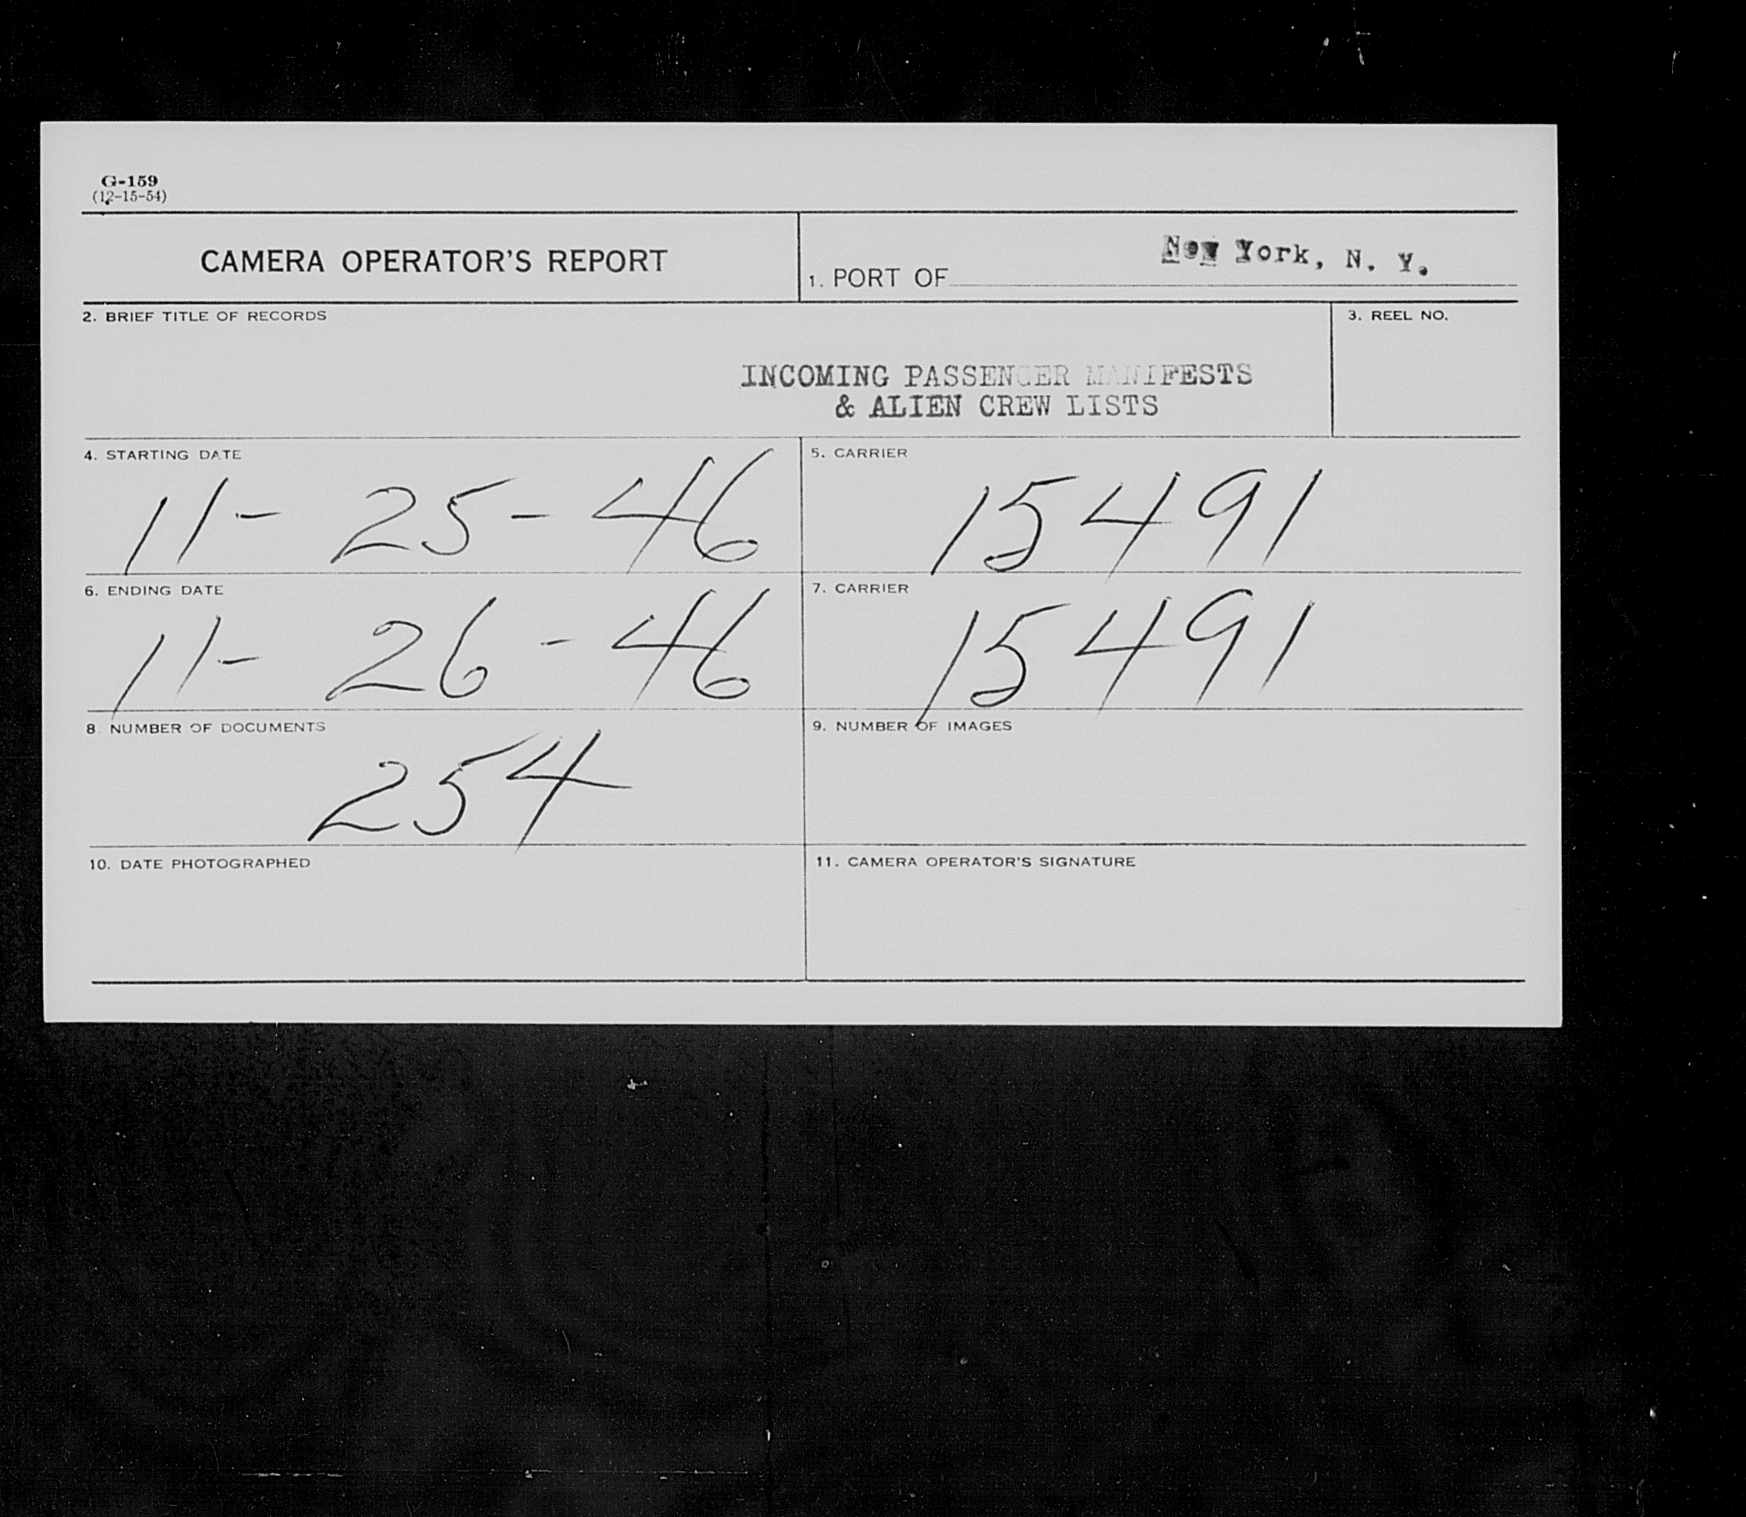 G-159
(12-15-54)
CAMERA OPERATOR'S REPORT
1. PORT OF New York, N. Y.
2. BRIEF TITLE OF RECORDS
INCOMING PASSENGER MANIFESTS
& ALIEN CREW LISTS
3. REEL NO.
4. STARTING DATE
11- 25-46
5. CARRIER
15491
6. ENDING DATE
11- 26-46
7. CARRIER
15491
8. NUMBER OF DOCUMENTS
254
9. NUMBER OF IMAGES
10. DATE PHOTOGRAPHED
11. CAMERA OPERATOR'S SIGNATURE